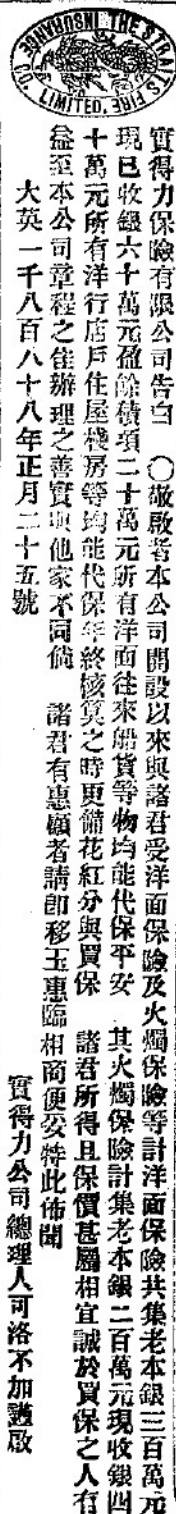 THE STRAITS FIRE INSURANCE CO. LIMITED.
實得力保險有限公司告白 ○敬啟者本公司開設以來與諸君受洋面保險及火燭保險等計洋面保險共集老本銀三百萬元
現已收銀六十萬元盈餘積項二十萬元所有洋面往來船貨等物均能代保平安 其火燭保險計集老本銀二百萬元現收銀四
十萬元所有洋行店戶住屋棧房等均能代保年終核算之時更備花紅分與買保 諸君所得且保價甚屬相宜誠於買保之人有
益至本公司章程之佳辦理之善實與他家不同倘 諸君有惠顧者請即移玉惠臨相商便妥特此佈聞
大英一千八百八十八年正月二十五號 實得力公司總理人可洛不加謹啟